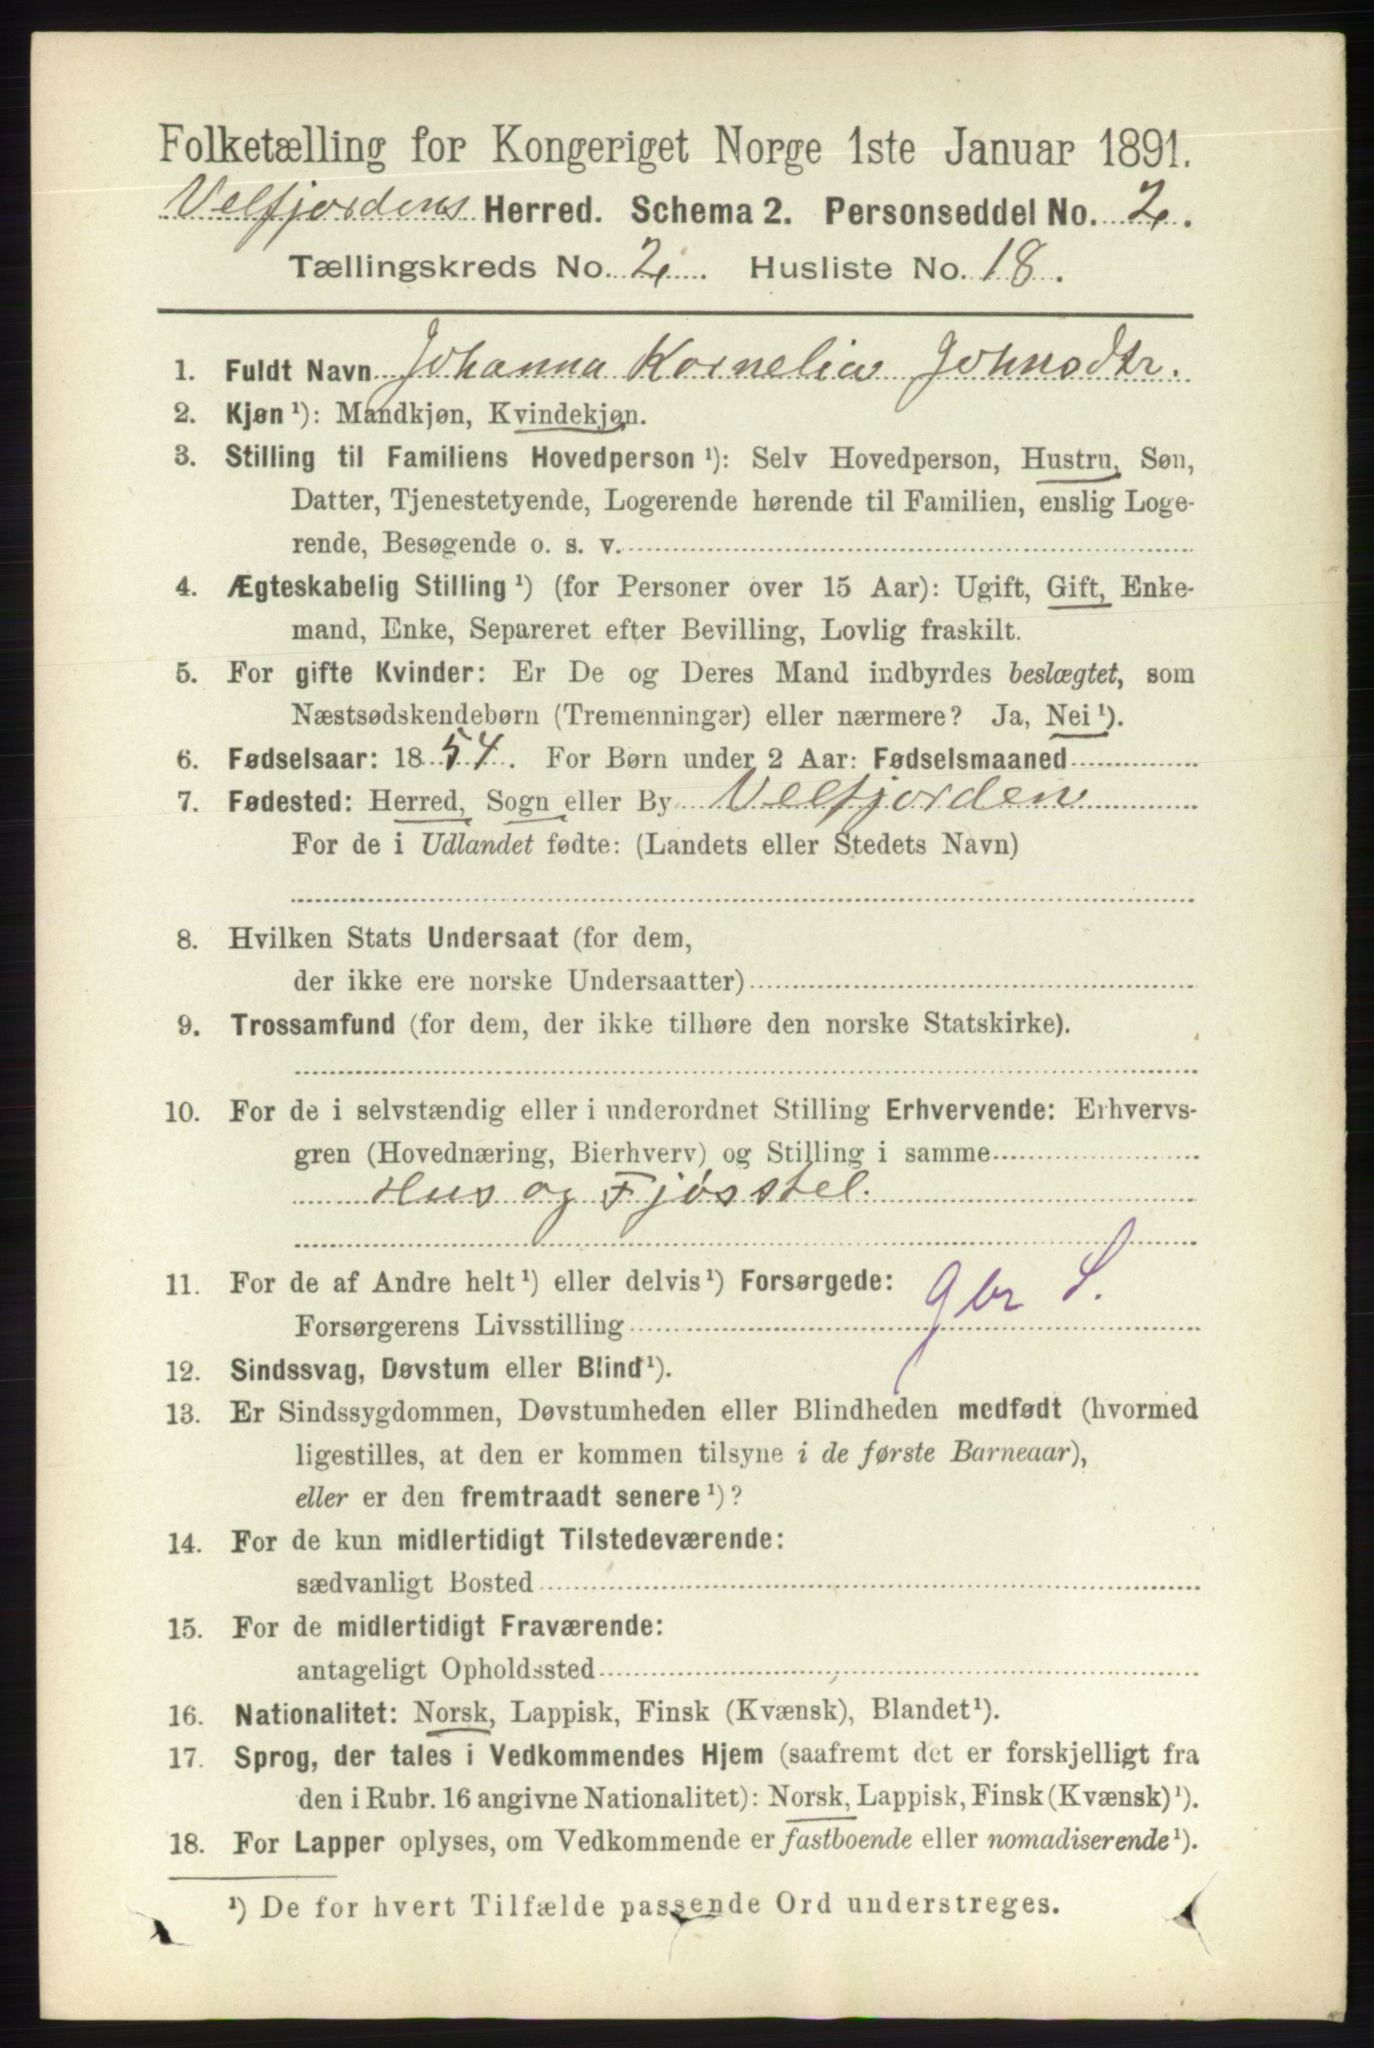 Folketælling for Kongeriget Norge 1ste Januar 1891.
Velfjordens Herred. Schema 2. Personseddel No. 2.
Tællingskreds No. 2. Husliste No. 18.
1. Fuldt Navn Johanna Kornelia Johnsdtr.
2. Kjøn ¹): Mandkjøn, Kvindekjøn.
3. Stilling til Familiens Hovedperson ¹): Selv Hovedperson, Hustru, Søn,
Datter, Tjenestetyende, Logerende hørende til Familien, enslig Loge-
rende, Besøgende o. s. v.
4. Ægteskabelig Stilling ¹) (for Personer over 15 Aar): Ugift, Gift, Enke-
mand, Enke, Separeret efter Bevilling, Lovlig fraskilt.
5. For gifte Kvinder: Er De og Deres Mand indbyrdes beslægtet, som
Næstsødskendebørn (Tremenninger) eller nærmere? Ja, Nei ¹).
6. Fødselsaar: 1854. For Børn under 2 Aar: Fødselsmaaned
7. Fødested: Herred, Sogn eller By Velfjorden
For de i Udlandet fødte: (Landets eller Stedets Navn)
8. Hvilken Stats Undersaat (for dem,
der ikke ere norske Undersaatter)
9. Trossamfund (for dem, der ikke tilhøre den norske Statskirke).
10. For de i selvstændig eller i underordnet Stilling Erhvervende: Erhvervs-
gren (Hovednæring, Bierhverv) og Stilling i samme
Hus og Fjøsstel.
11. For de af Andre helt ¹) eller delvis ¹) Forsørgede: gbr S.
Forsørgerens Livsstilling
12. Sindssvag, Døvstum eller Blind ¹).
13. Er Sindssygdommen, Døvstumheden eller Blindheden medfødt (hvormed
ligestilles, at den er kommen tilsyne i de første Barneaar),
eller er den fremtraadt senere ¹)?
14. For de kun midlertidigt Tilstedeværende:
sædvanligt Bosted
15. For de midlertidigt Fraværende:
antageligt Opholdssted
16. Nationalitet: Norsk, Lappisk, Finsk (Kvænsk), Blandet ¹).
17. Sprog, der tales i Vedkommendes Hjem (saafremt det er forskjelligt fra
den i Rubr. 16 angivne Nationalitet): Norsk, Lappisk, Finsk (Kvænsk) ¹).
18. For Lapper oplyses, om Vedkommende er fastboende eller nomadiserende ¹).
¹) De for hvert Tilfælde passende Ord understreges.